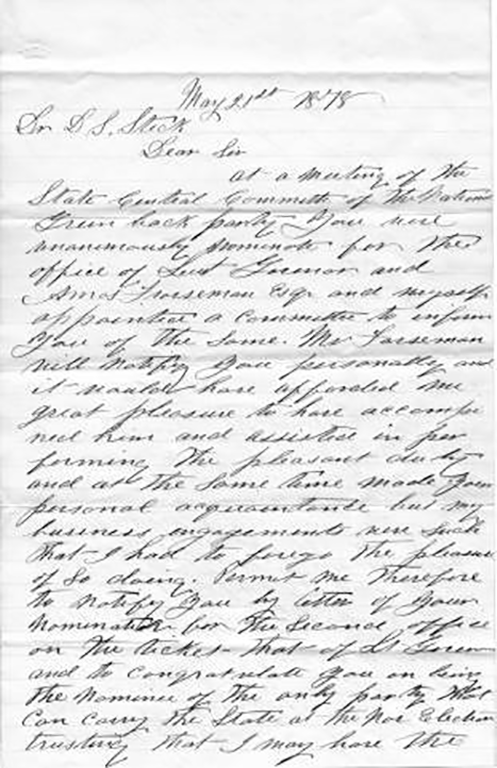 May 21st 1878
Dr D S. Steck
Dear Sir
at a meeting of the
State Central Committe of the National
Green back party You were
unanimously nominate for the
office of Lieut Govenor and
Amos Forseman Esqr and myself
appointed a Committee to inform
You of the Same. Mr Forseman
will notify You personally and
it would have afforded me
great pleasure to have accompa
nied him and assisted in per
forming the pleasant duty
and at the Same time made Your
personal acquaintance but my
business engagements were Such
that I had to forego the pleasure
of So doing. Permit me Therefore
to notify You by letter of Your
Nomination for the Second office
on the ticket - that of Lt Govenor
and to Congratulate You on being
the Nominee of the only party that
Can Carry the State at the Nov Election
trusting that I may have the